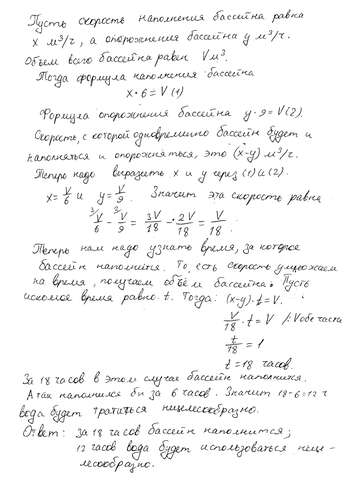 Пусть скорость наполнения бассейна равна
x м³/ч, а опорожнения бассейна y м³/ч.
Объем всего бассейна равен V м³.
Тогда формула наполнения бассейна
x·6 = V (1)
Формула опорожнения бассейна y·9 = V (2).
Скорость, с которой одновременно бассейн будет и
наполняться и опорожняться, это (x-y) м³/г.
Теперь надо выразить x и y через (1) и (2).
x = V/6 и y = V/9. Значит эта скорость равна
³V/6 - ²V/9 = 3V/18 - 2V/18 = V/18.
Теперь нам надо узнать время, за которое
бассейн наполнится. То, есть скорость умножаем
на время, получаем объём бассейна. Пусть
искомое время равно t. Тогда: (x-y)·t = V.
V/18 · t = V /:V обе части
t/18 = 1
t = 18 часов.
За 18 часов в этом случае бассейн наполнится.
А так наполнился бы за 6 часов. Значит 18-6=12 ч
вода будет тратиться нецелесообразно.
Ответ: за 18 часов бассейн наполнится;
12 часов вода будет использоваться неце-
лесообразно.